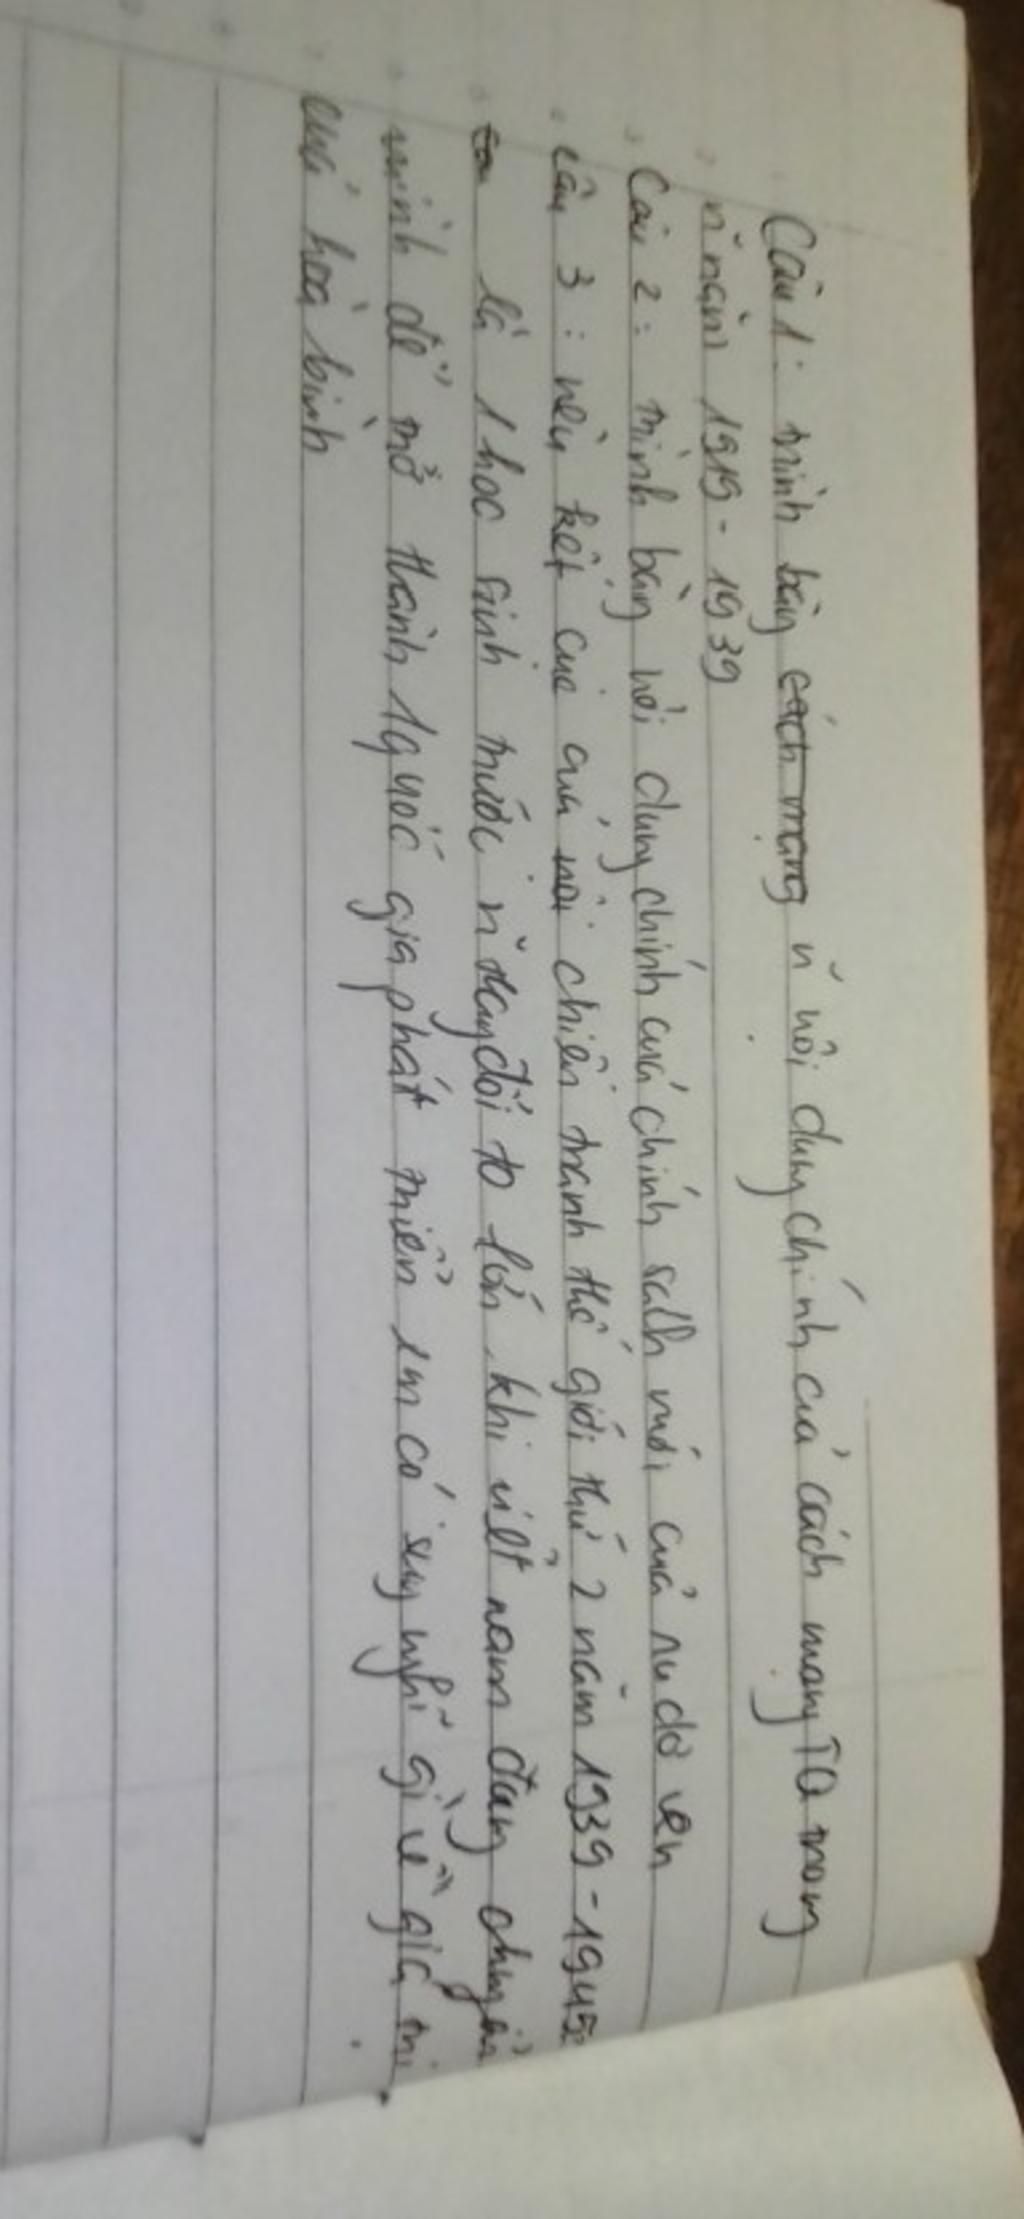 Câu 1: trình bày cách mạng ñ nội dung chính của cách mạng TQ trong
ñ năm 1919 - 1939
Câu 2: trình bày nội dung chính của chính sách mới của ru dơ ven
câu 3: nêu kết cục của nội chiến tranh thế giới thứ 2 năm 1939 - 1945
là 1 học sinh trước ñ thay đổi to lớn khi việt nam đang
mình để trở thành 1 quốc gia phát triển em có suy nghĩ gì về giá trị
của hoà bình